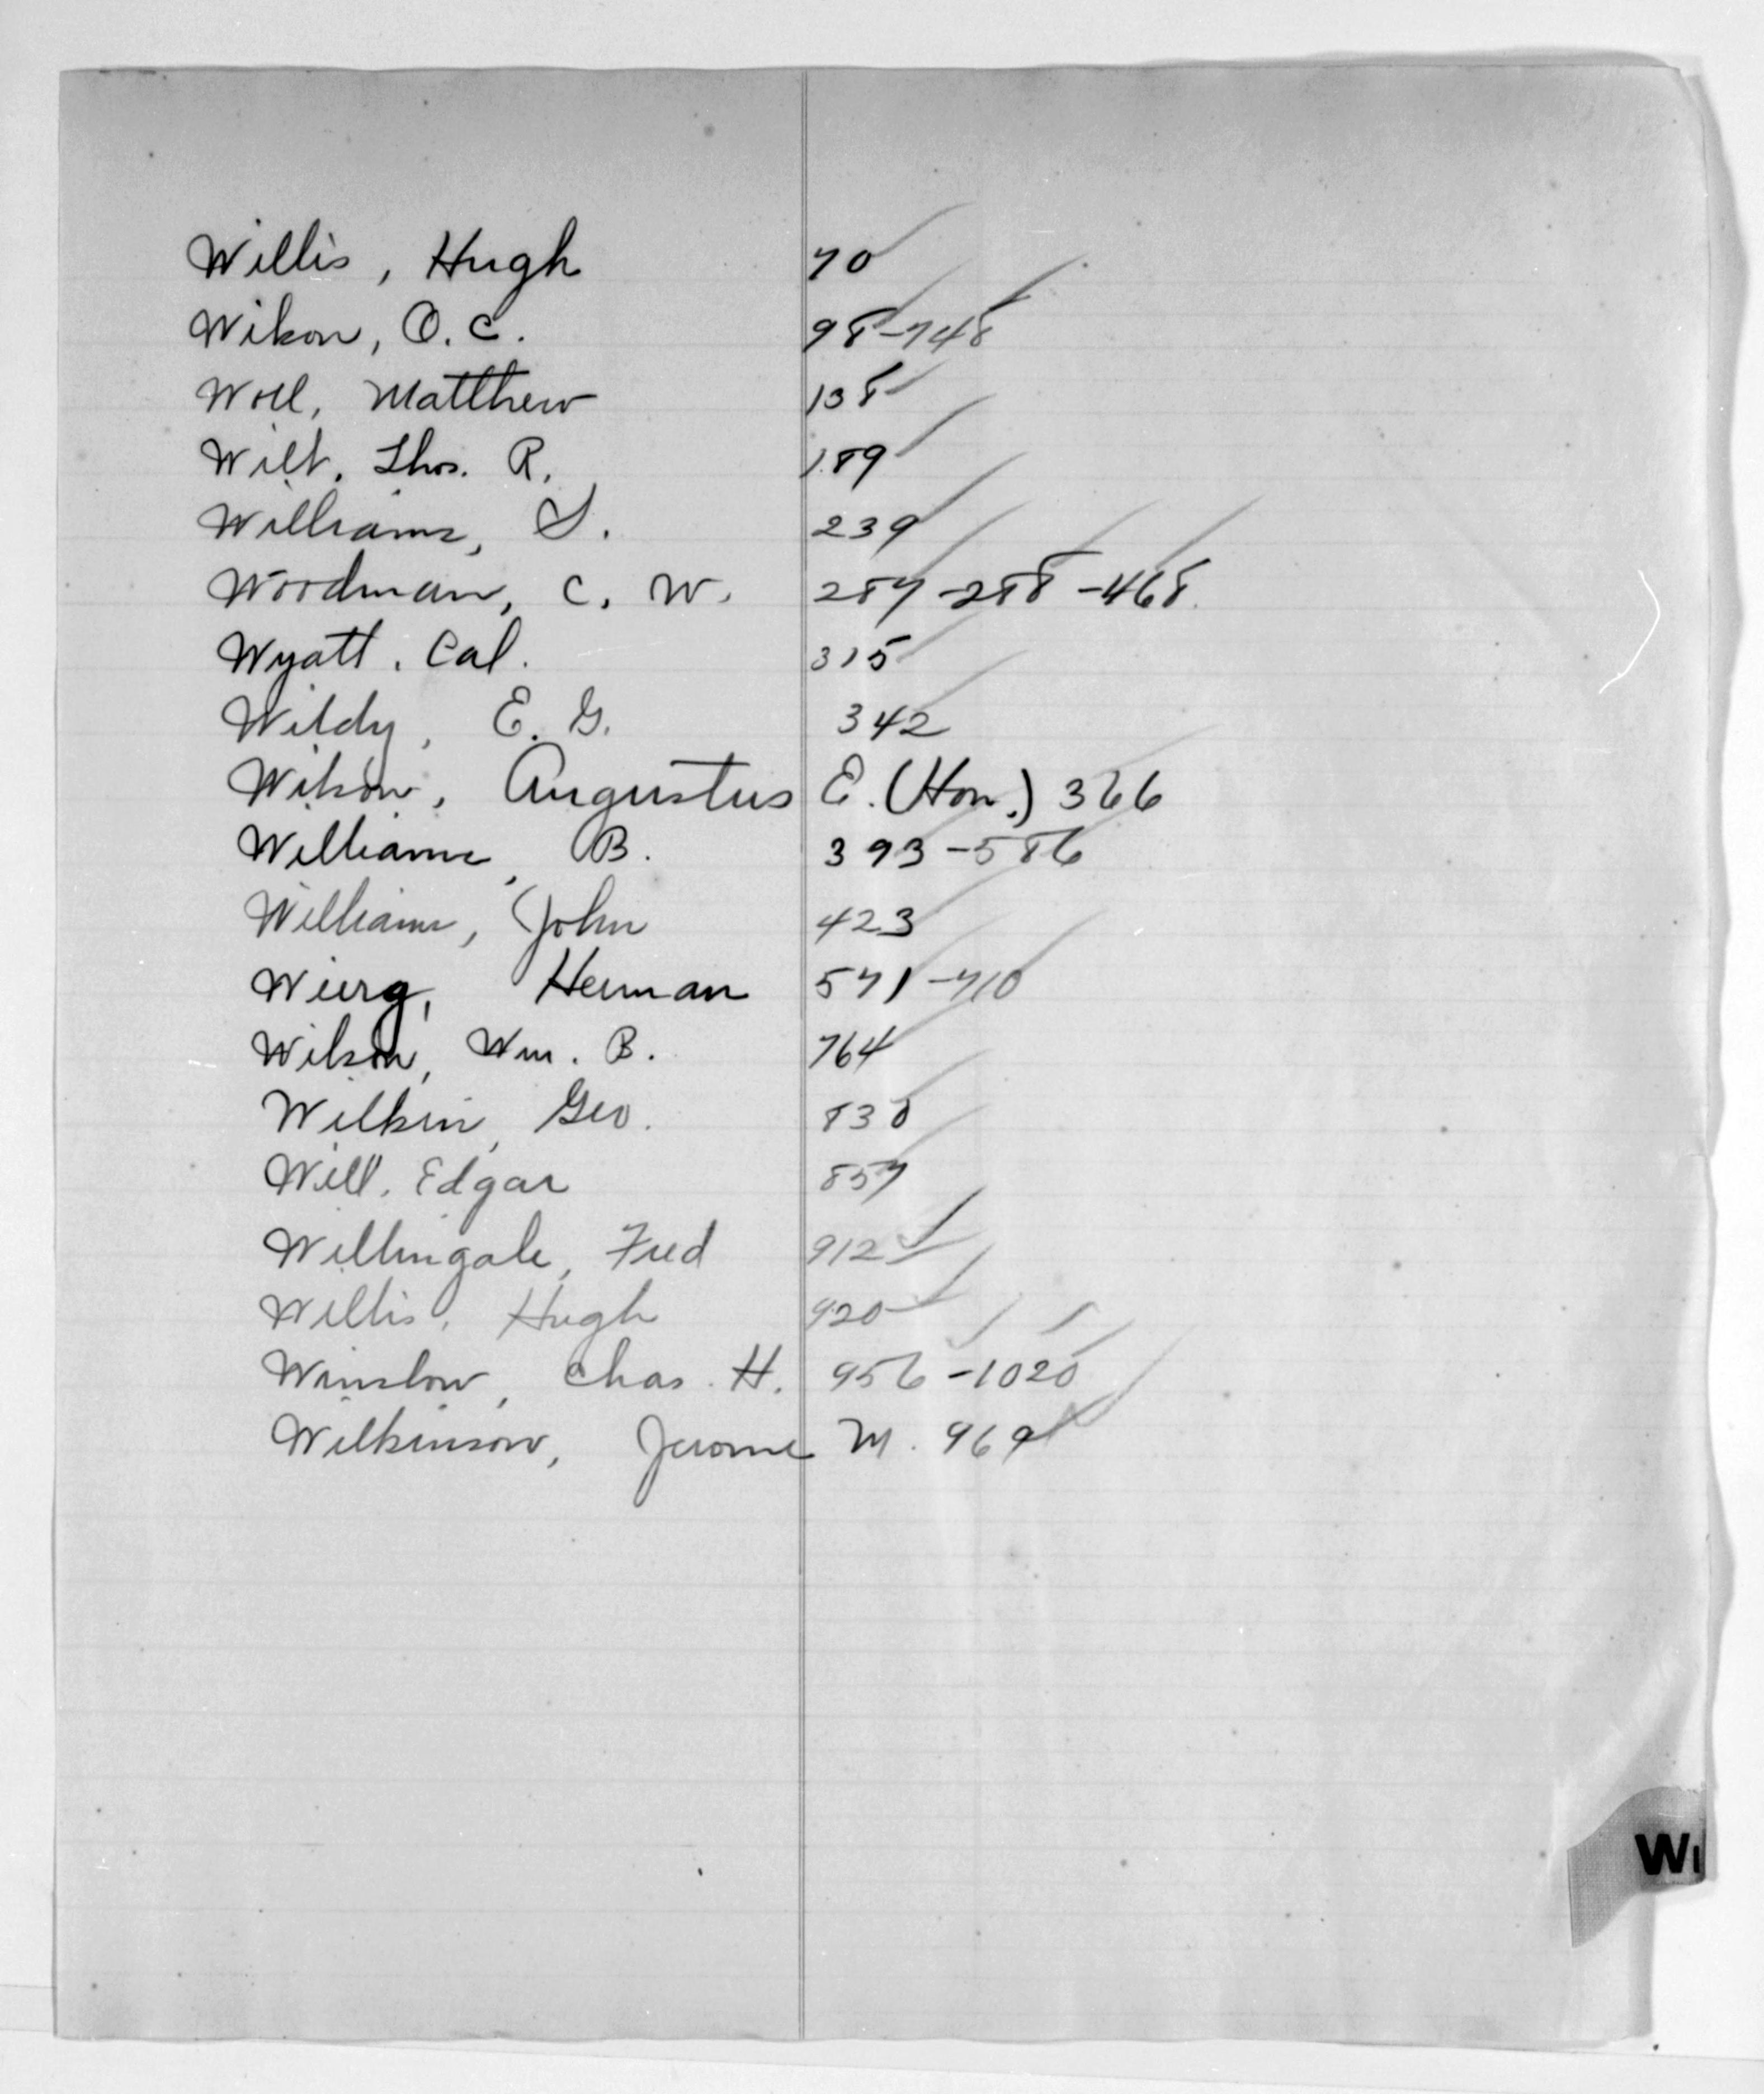 Willis, Hugh 70
Wilson, O.C. 98-748
Woll, Matthew 138
Wilt, Thos. R. 189
Williams, S. 239
Woodman, C. W. 287-288-468
Wyatt, Cal. 315
Wildy, E. G. 342
Wilson, Augustus E. (Hon.) 366
Williams, B. 393-586
Williams, John 423
Herman 571-710
Wilson, Wm. B. 764
Wilkin, Geo. 830
Will, Edgar 857
Willingale, Fred 912
Willis, Hugh 920
Winslow, Chas. H. 956-1020
Wilkinson, Jerome M. 969
Wi